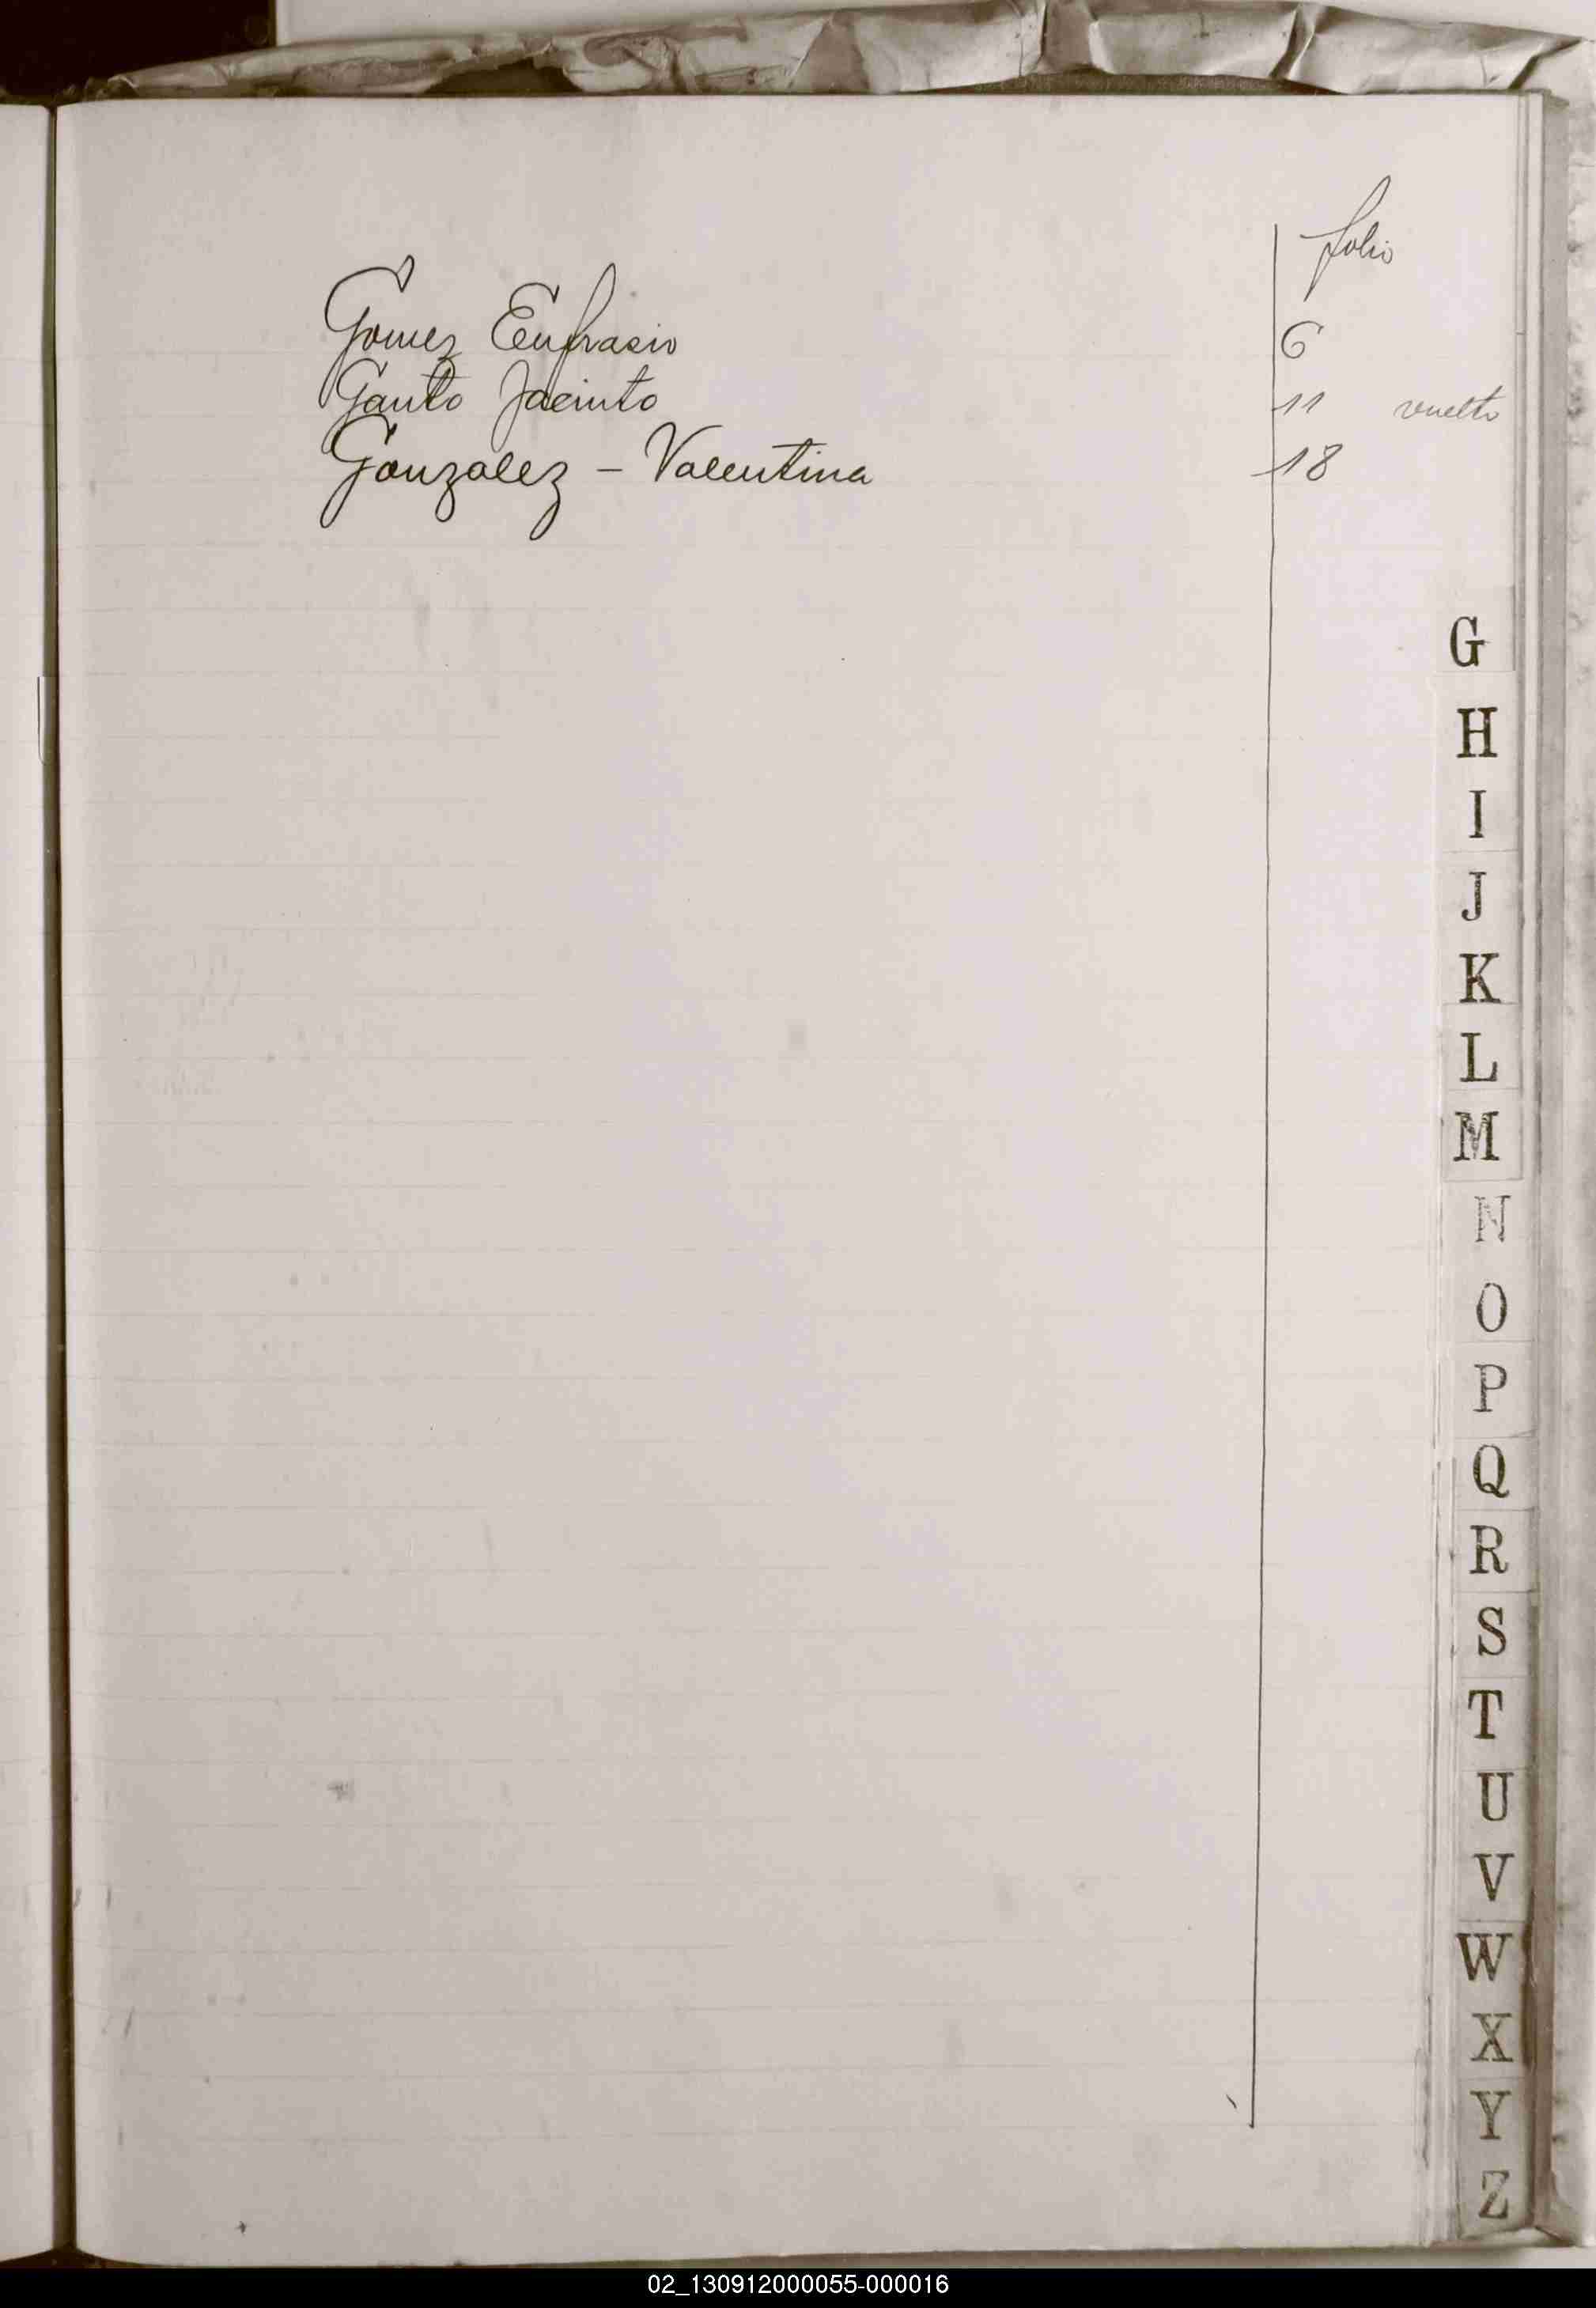 folio
Gomez Eufrasio 6
Gauto Jacinto 11 vuelto
Gonzalez - Valentina 18
G
H
I
J
K
L
M
N
O
P
Q
R
S
T
U
V
W
X
Y
Z
02_130912000055-000016